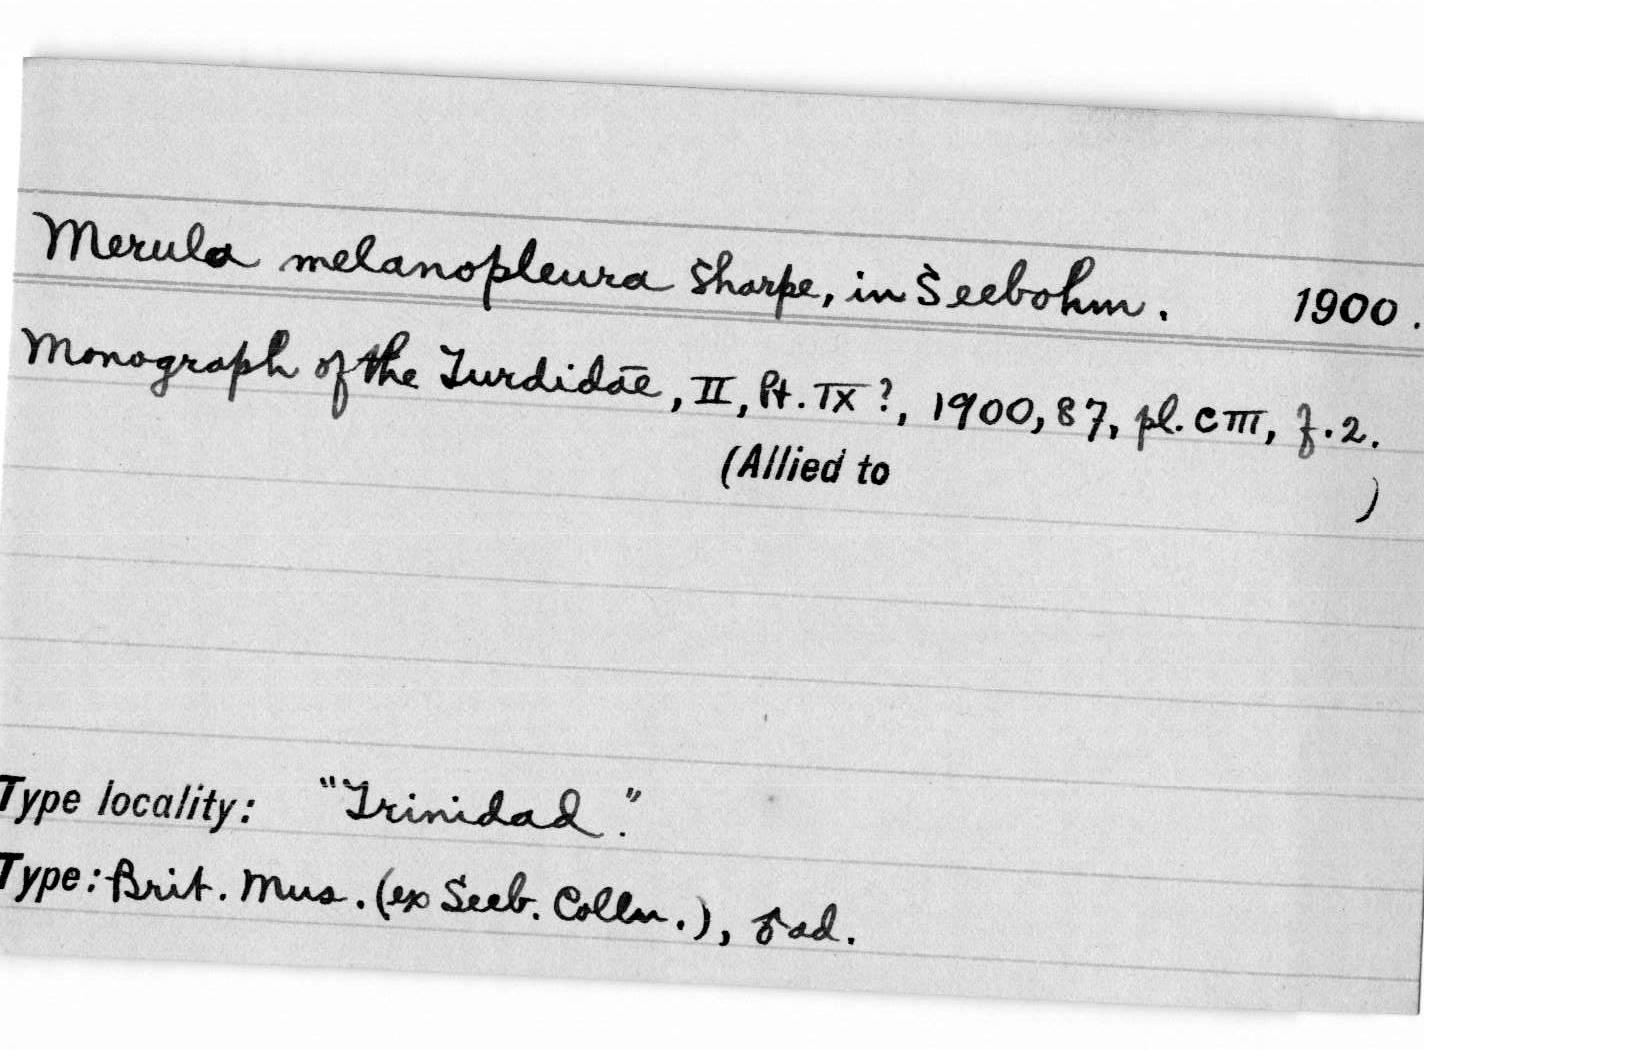 Merula melanopleura Sharpe, in Seebohm. 1900.
Monograph of the Turdidae, II, Pt. IX?, 1900, 87, pl. CIII, f. 2.
(Allied to )
Type locality: "Trinidad."
Type: Brit. Mus. (ex Seeb. Colln.), ♂ ad.